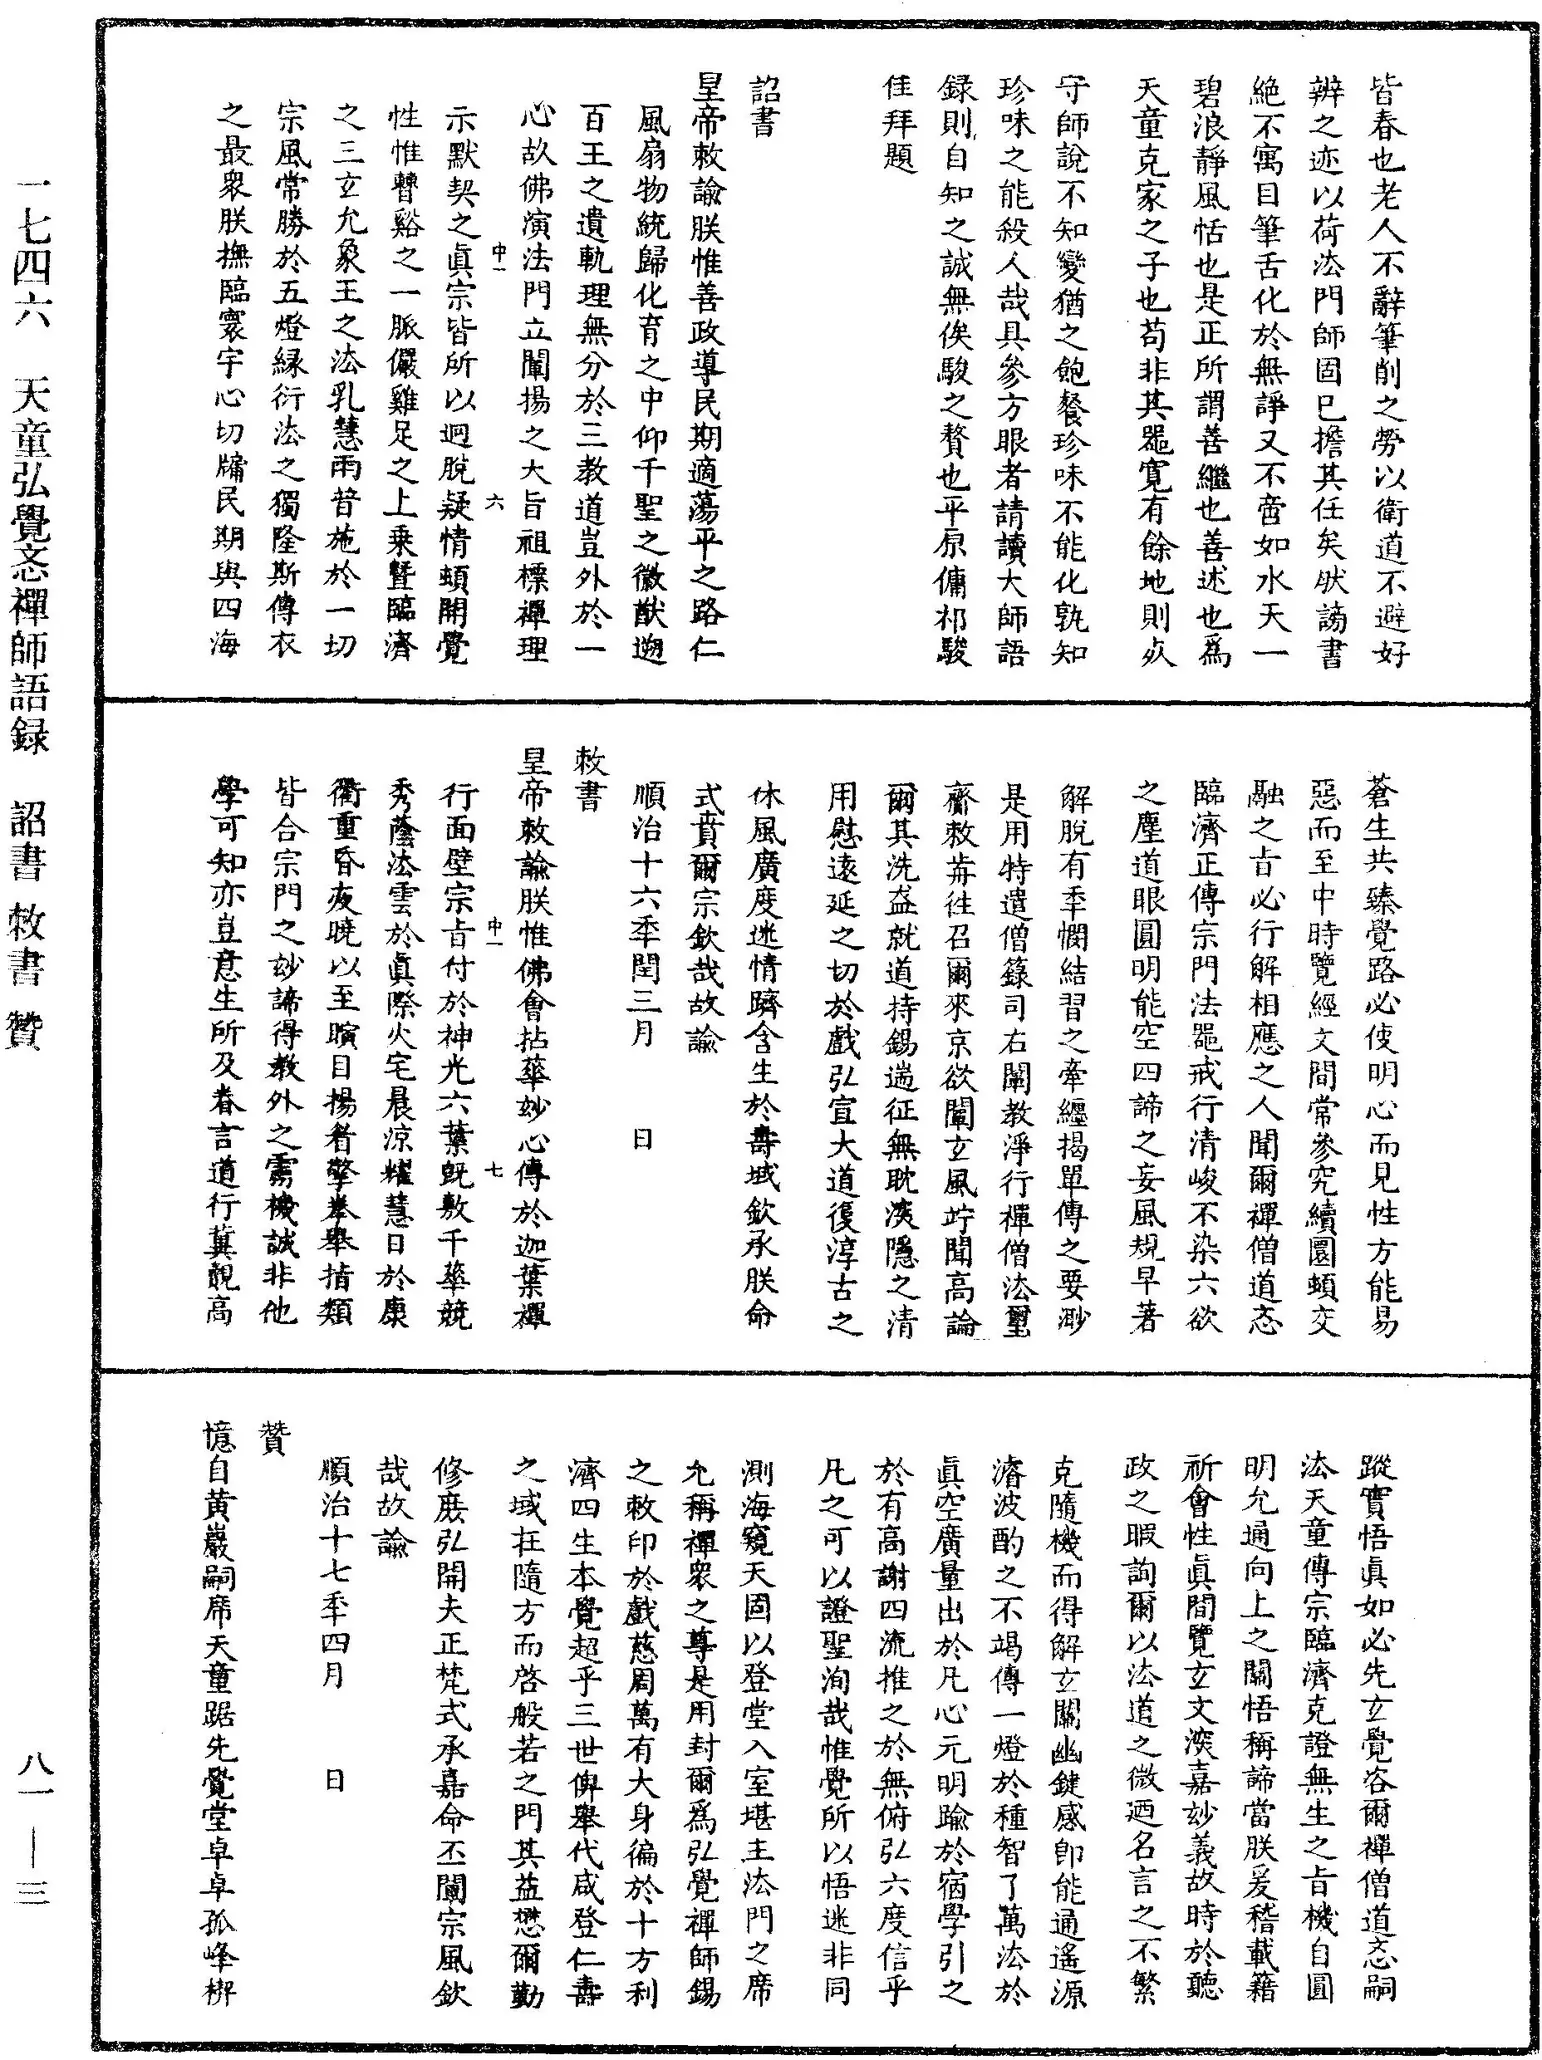 皆春也老人不辭筆削之勞以衛道不避好
辨之迹以荷法門師固已擔其任矣然謗書
絶不寓目筆舌化於無諍又不啻如水天一
碧浪靜風恬也是正所謂善繼也善述也爲
天童克家之子也苟非其器寛有餘地則必
守師說不知變猶之飽餐珍味不能化孰知
珍味之能殺人哉具參方眼者請讀大師語
録則自知之誠無俟駿之贅也平原傭祁駿
佳拜題
詔書
皇帝敕諭朕惟善政導民期適蕩平之路仁
風扇物統歸化育之中仰千聖之徽猷遡
百王之遺軌理無分於三教道豈外於一
心故佛演法門立闡揚之大旨祖標禪理
示默契之眞宗皆所以迥脫疑情頓開覺
中一 六
性惟曹谿之一脈儼雞足之上乗曁臨濟
之三玄允象王之法乳慧雨普施於一切
宗風常勝於五燈緑衍法之獨隆斯傳衣
之最衆朕撫臨寰宇心切牖民期與四海
蒼生共臻覺路必使明心而見性方能易
惡而至中時覽經文間常參究續圓頓交
融之旨必行解相應之人聞爾禪僧道忞
臨濟正傳宗門法器戒行清峻不染六欲
之塵道眼圓明能空四諦之妄風規早著
解脫有年憫結習之牽纏揭單傳之要渺
是用特遣僧錄司右闡教淨行禪僧法璽
齎敕前往召爾來京欲闡玄風竚聞高論
爾其洗盋就道持錫遄征無耽湥隱之清
用慰遠延之切於戲弘宣大道復淳古之
休風廣度迷情躋含生於壽域欽承朕命
式賁爾宗欽哉故諭
順治十六年閏三月 日
敕書
皇帝敕諭朕惟佛會拈華妙心傳於迦葉禪
行面壁宗旨付於神光六葉旣敷千華競
中一 七
秀蔭法雲於眞際火宅晨涼燿慧日於康
衢重昏夜曉以至瞚目揚眉擎拳舉指類
皆合宗門之玅諦得教外之靈機誠非他
學可知亦豈意生所及眷言道行冀覩高
蹤實悟眞如必先玄覺咨爾禪僧道忞嗣
法天童傳宗臨濟克證無生之旨機自圓
明允通向上之關悟稱諦當朕爰稽載籍
祈會性眞間覽玄文湥嘉妙義故時於聽
政之暇詢爾以法道之微迺名言之不繁
克隨機而得解玄關幽鍵感卽能通遙源
濬波酌之不竭傳一燈於種智了萬法於
眞空廣量出於凡心元明踰於宿學引之
於有高謝四流推之於無俯弘六度信乎
凡之可以證聖洵哉惟覺所以悟迷非同
測海窺天固以登堂入室堪主法門之席
允稱禪衆之尊是用封爾爲弘覺禪師錫
之敕印於戲慈周萬有大身徧於十方利
濟四生本覺超乎三世俾舉代咸登仁壽
之域在隨方而啓般若之門其益懋爾勤
修庶弘開夫正梵式承嘉命丕闡宗風欽
哉故諭
順治十七年四月 日
贊
憶自黃巖嗣席天童踞先覺堂卓卓孤峰榔
一七四六 天童弘覺忞禪師語録 詔書 敕書 贊
八一—三